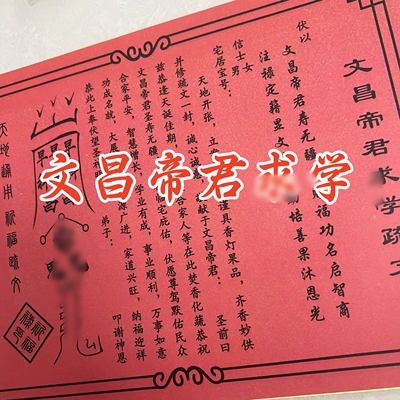 文昌帝君求学
文昌帝君求学疏文
伏以
文昌帝君寿无疆 福功名启智商
注禄定籍显文 培善果沐恩光
信士男女
宅居宝号:
天地开张,立 谨具香灯果品,齐香妙供
并修疏文一封,诚心诚 献于文昌帝君: 圣前曰
兹恭逢天诞佳期, 合家人等在此焚香化疏恭祝
文昌帝君圣寿无疆 临宅庇佑,伏愿尊驾默佑民众
合家平安,智慧增长,学业有成,事业顺利,万事如意
功成名就,大展 源广进,家道兴旺,纳福迎祥
恭此上奉伏望圣 弟子: 叩谢神恩
天地通用祈福疏文